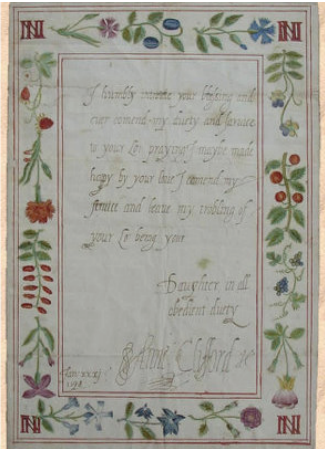 I humbly intreate your blessing and
ever comend my duety and service
to your Lo: praying I maye be made
hapy by your love I comend my
service and leave my trobling of
your Lr being your
Daughter in all
obedient duety
Anne Clifford